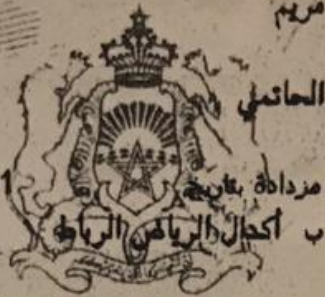 مريم
الحاتمي
مزدادة بتاريخ 1
ب أكدال الرياض الرباط